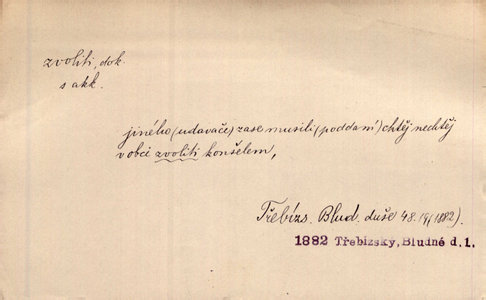 zvoliti, dok.
s akk.
jiného (udavače) zase musili (poddaní) chtěj nechtěj
v obci zvoliti konšelem,
Třebízs. Blud. duše 48. (1882).
1882 Třebízský, Bludné d. 1.